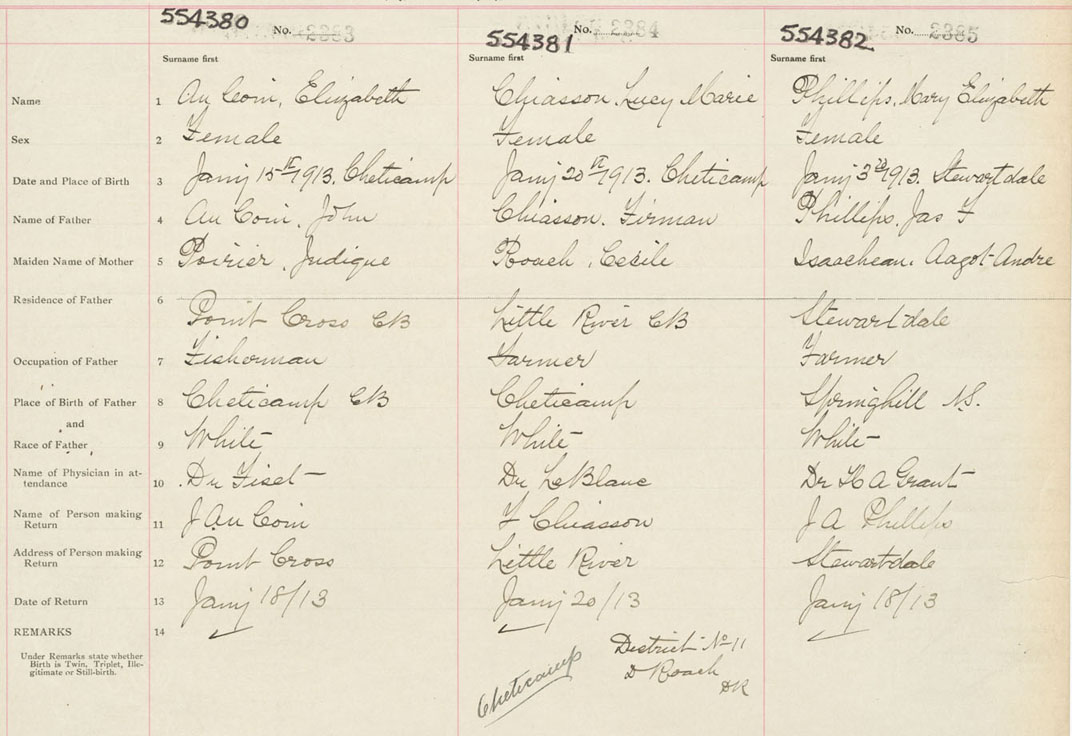 554380 No. 2383
554381 No. 2384
554382 No. 2385
Surname first Surname first Surname first
Name 1 Au Coin, Elizabeth Chiasson, Lucy Marie Phillips, Mary Elizabeth
Sex 2 Female Female Female
Date and Place of Birth 3 Jany 15th 1913. Cheticamp Jany 20th 1913. Cheticamp Jany 3rd 1913. Stewartdale
Name of Father 4 Au Coin, John Chiasson. Firman Phillips, Jas F
Maiden Name of Mother 5 Poirier, Judique Roach, Cecile Aagot Andre
Residence of Father 6 Point Cross CB Little River CB Stewartdale
Occupation of Father 7 Fisherman Farmer Farmer
Place of Birth of Father 8 Cheticamp CB Cheticamp Springhill N.S.
and
Race of Father 9 White White White
Name of Physician in at-
tendance 10 Dr Fiset Dr LeBlanc Dr H A Grant
Name of Person making
Return 11 J Au Coin F Chiasson J A Phillips
Address of Person making
Return 12 Point Cross Little River Stewartdale
Date of Return 13 Jany 18/13 Jany 20/13 Jany 18/13
REMARKS 14
Under Remarks state whether
Birth is Twin, Triplet, Ille-
gitimate or Still-birth.
Cheticamp
District No 11
D Roach
DR